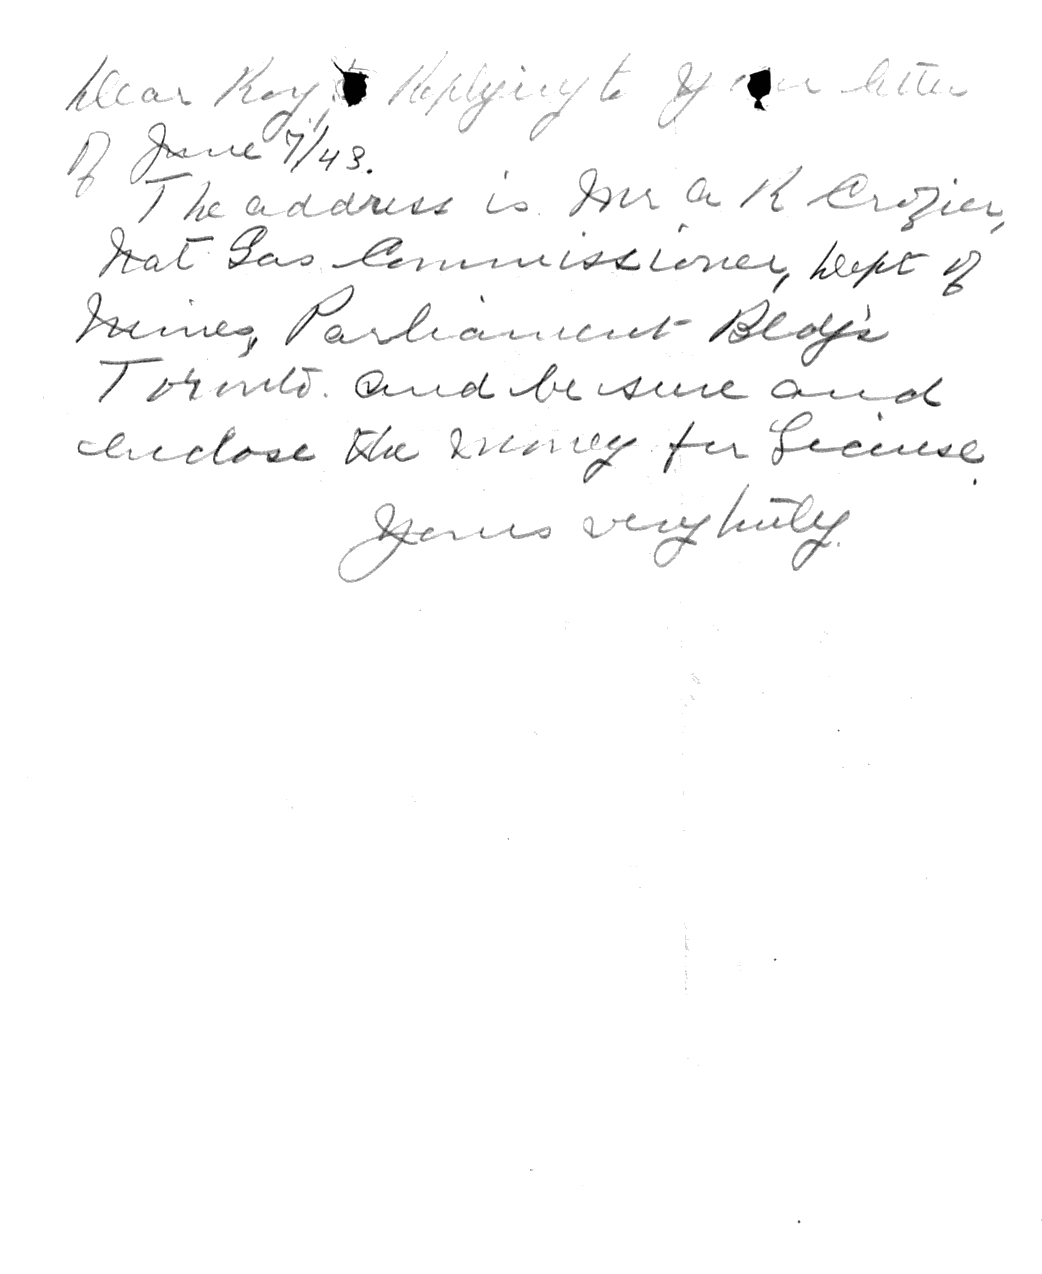 Dear Roy, Replying to your letter
of June 7/43.
The address is Mr A K Crozier,
Nat Gas Commissioner, Dept of
Mines, Parliament Bldg's
Toronto. and be sure and
enclose the money for License.
Yours very truly.